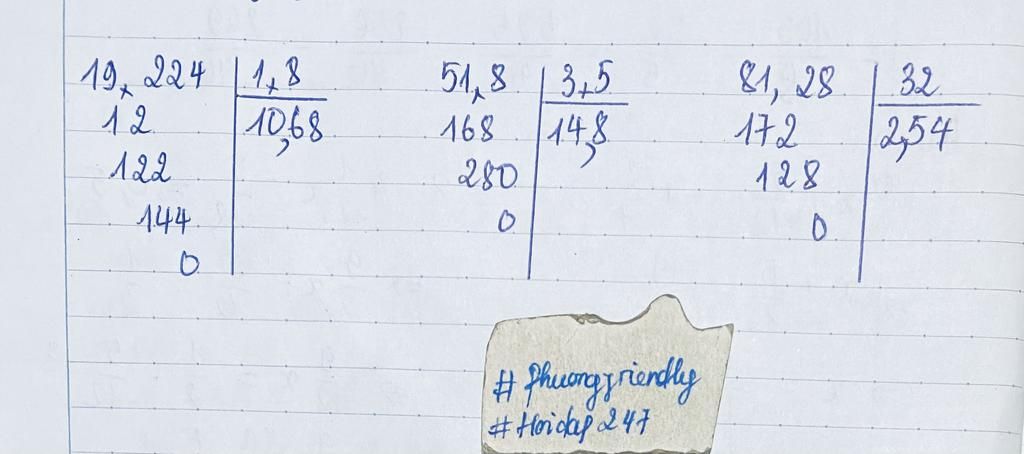 19,224 1,8
12 10,68
122
144
0
51,8 3,5
168 14,8
280
0
81,28 32
172 2,54
128
0
# phuongfriendly
# Hoidap 247